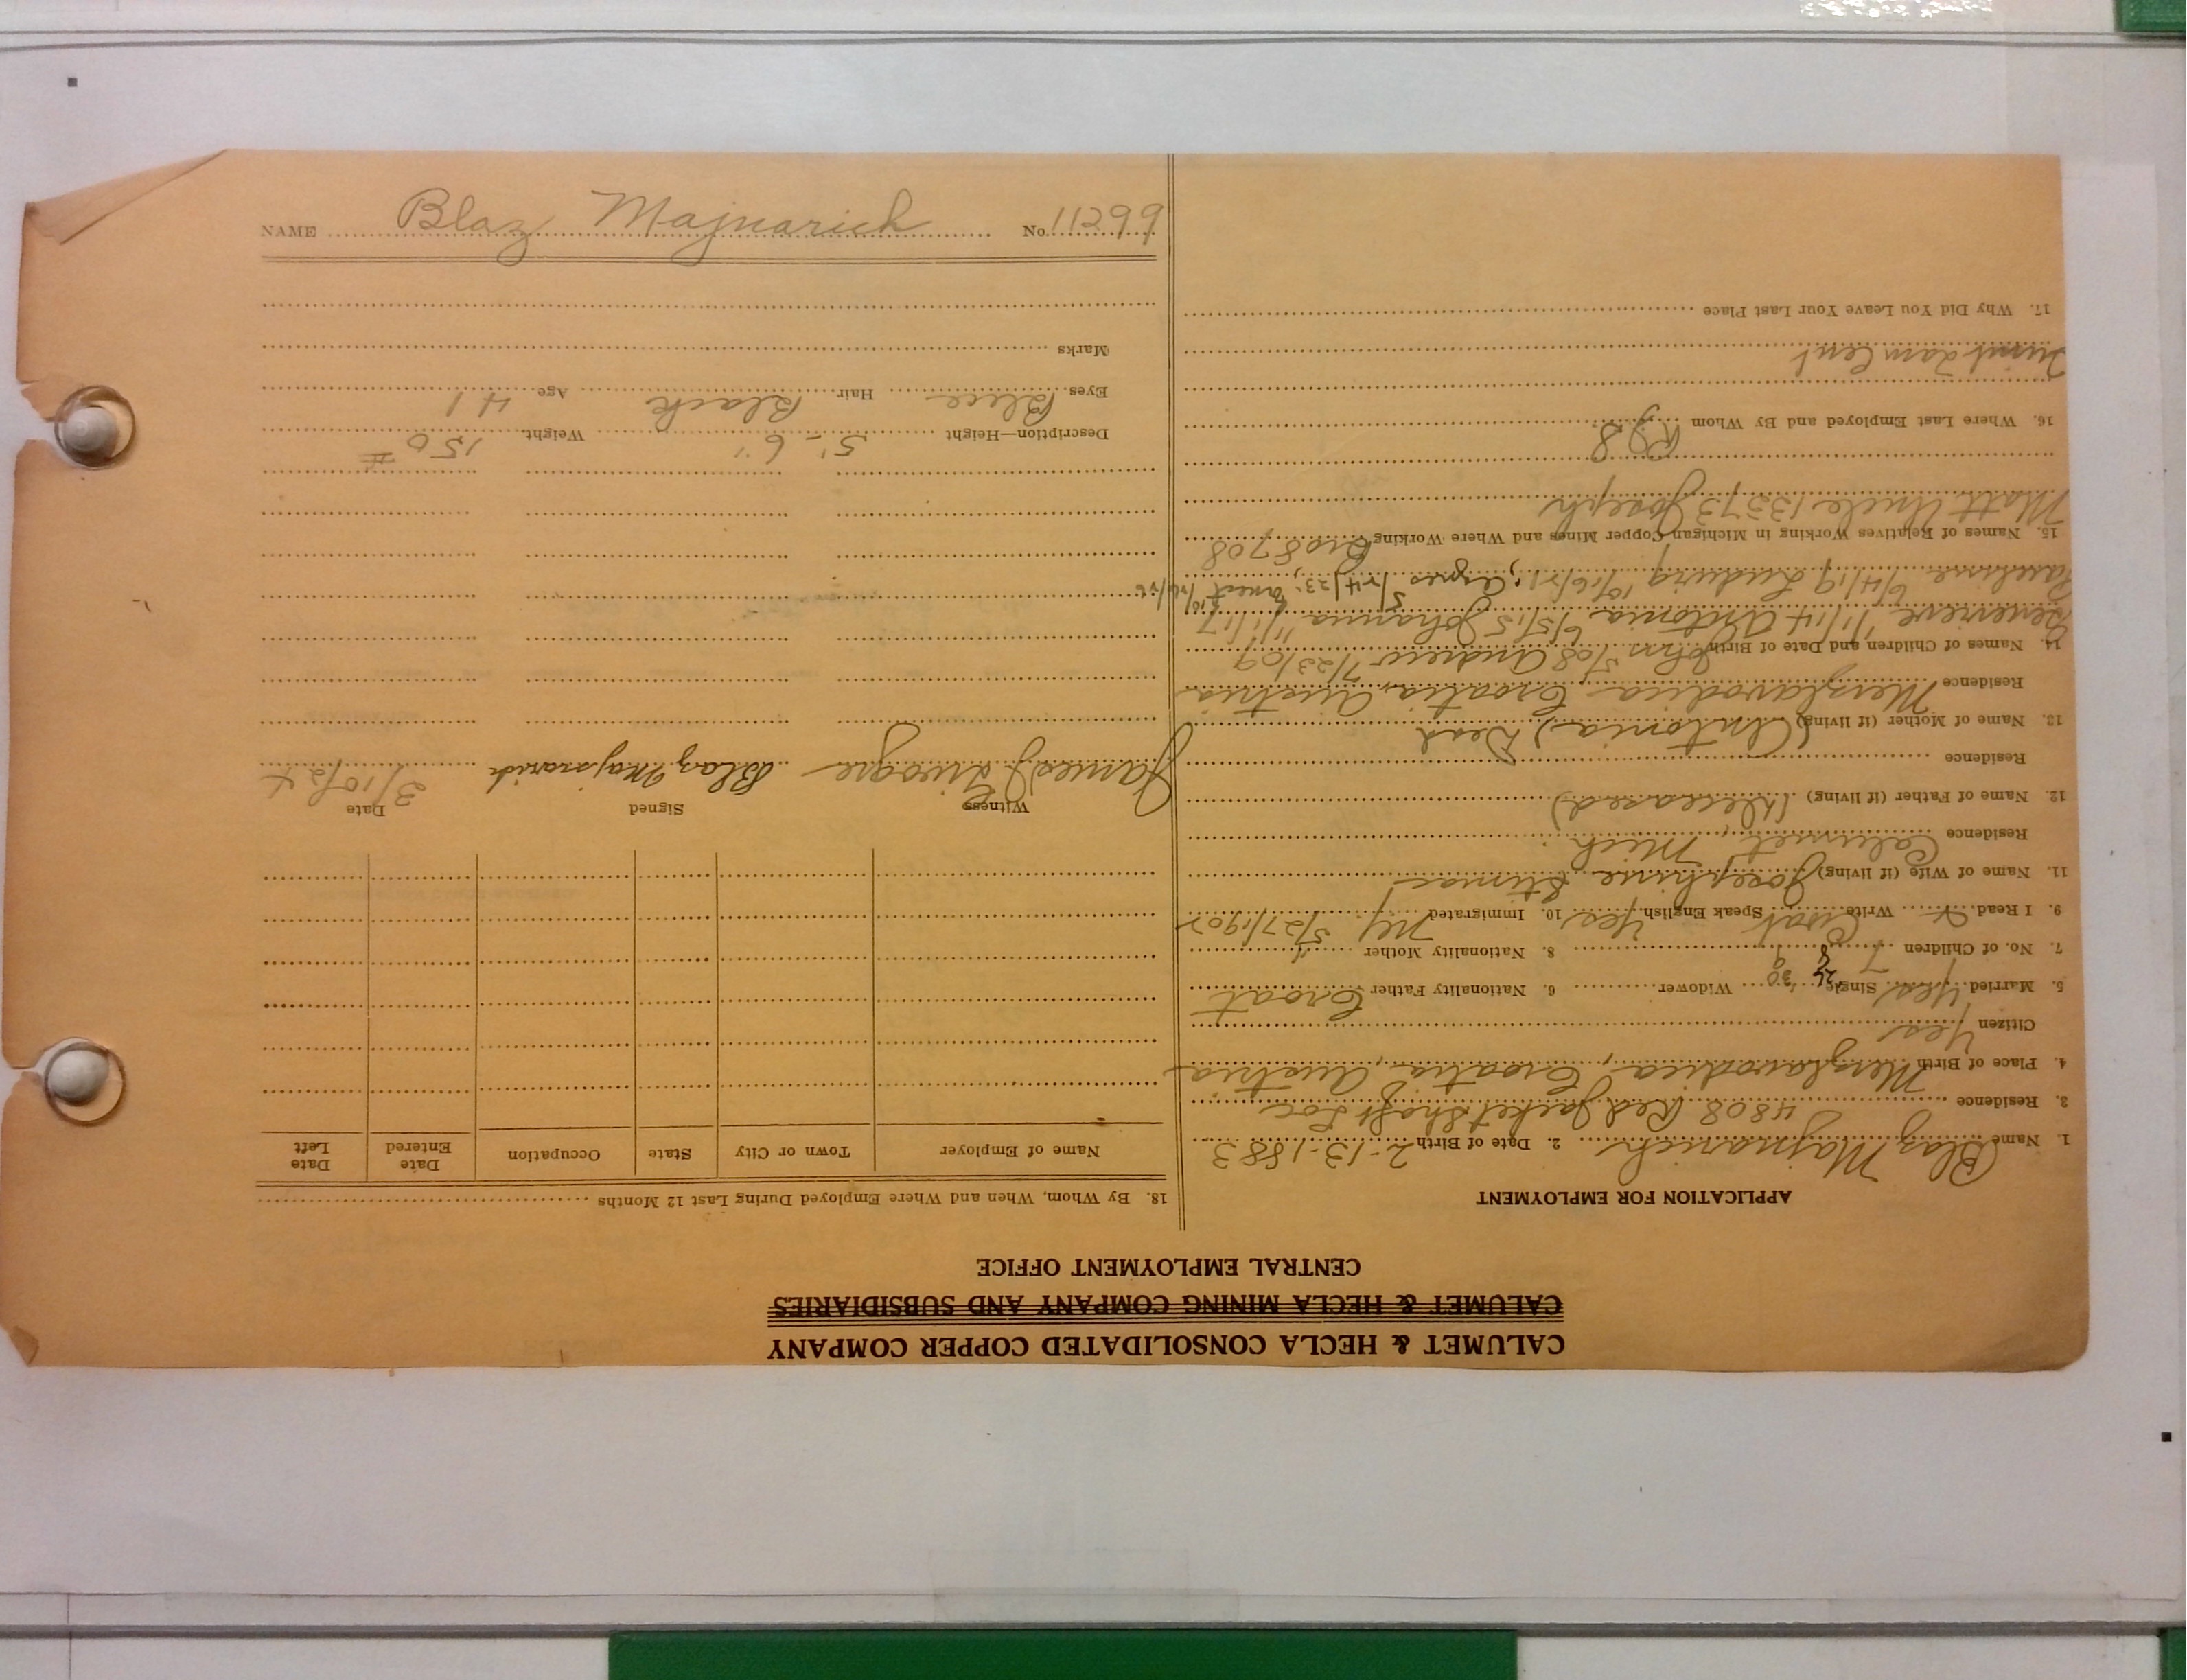 CALUMET & HECLA CONSOLIDATED COPPER COMPANY
CALUMET & HECLA MINING COMPANY AND SUBSIDIARIES
CENTRAL EMPLOYMENT OFFICE
APPLICATION FOR EMPLOYMENT
1. Name Blaz Majnarich 2. Date of Birth 2-13-1883
3. Residence 4808 Red Jacket Shaft Loc
4. Place of Birth Merzlavodica, Croatia, Austria
Citizen Yes
5. Married Yes Single Widower 6. Nationality Father Croat
7. No. of Children 7 8 9 8. Nationality Mother "
9. I Read Write Croat Speak English Yes 10. Immigrated NY 5/27/1902
11. Name of Wife (if living) Josephine Stimac
Residence Calumet, Mich.
12. Name of Father (if living) (Deceased)
Residence
13. Name of Mother (if living) (Antonia) Dead
Residence Merzlavodica Croatia, Austria
14. Names of Children and Date of Birth John 5/08 Andrew 7/23/09
Genevieve 1/1/14 Antonia 6/5/15 Johanna 1/1/17
Pauline 6/4/19 Ludwig 10/6/21, Agnes 5/24/23, Ernest
15. Names of Relatives Working in Michigan Copper Mines and Where Working Bro 8708
Matt Uncle 13373 Joseph
16. Where Last Employed and By Whom
17. Why Did You Leave Your Last Place
18. By Whom, When and Where Employed During Last 12 Months
Name of Employer Town or City State Occupation Date Entered Date Left
Witness Signed Date
James Blaz Majnarich 3/10/24
Description—Height 5'-6" Weight 150 #
Eyes Blue Hair Black Age 41
Marks
NAME Blaz Majnarich No. 11299